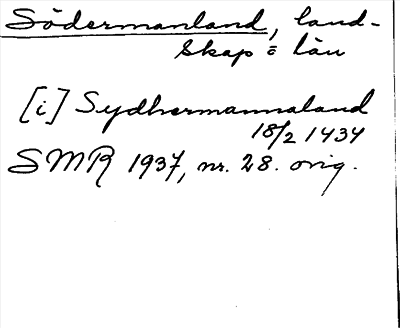 Södermanland, land-
skap = län
[i] Sydhermannaland
18/2 1434
SMR 1937, nr. 28. orig.